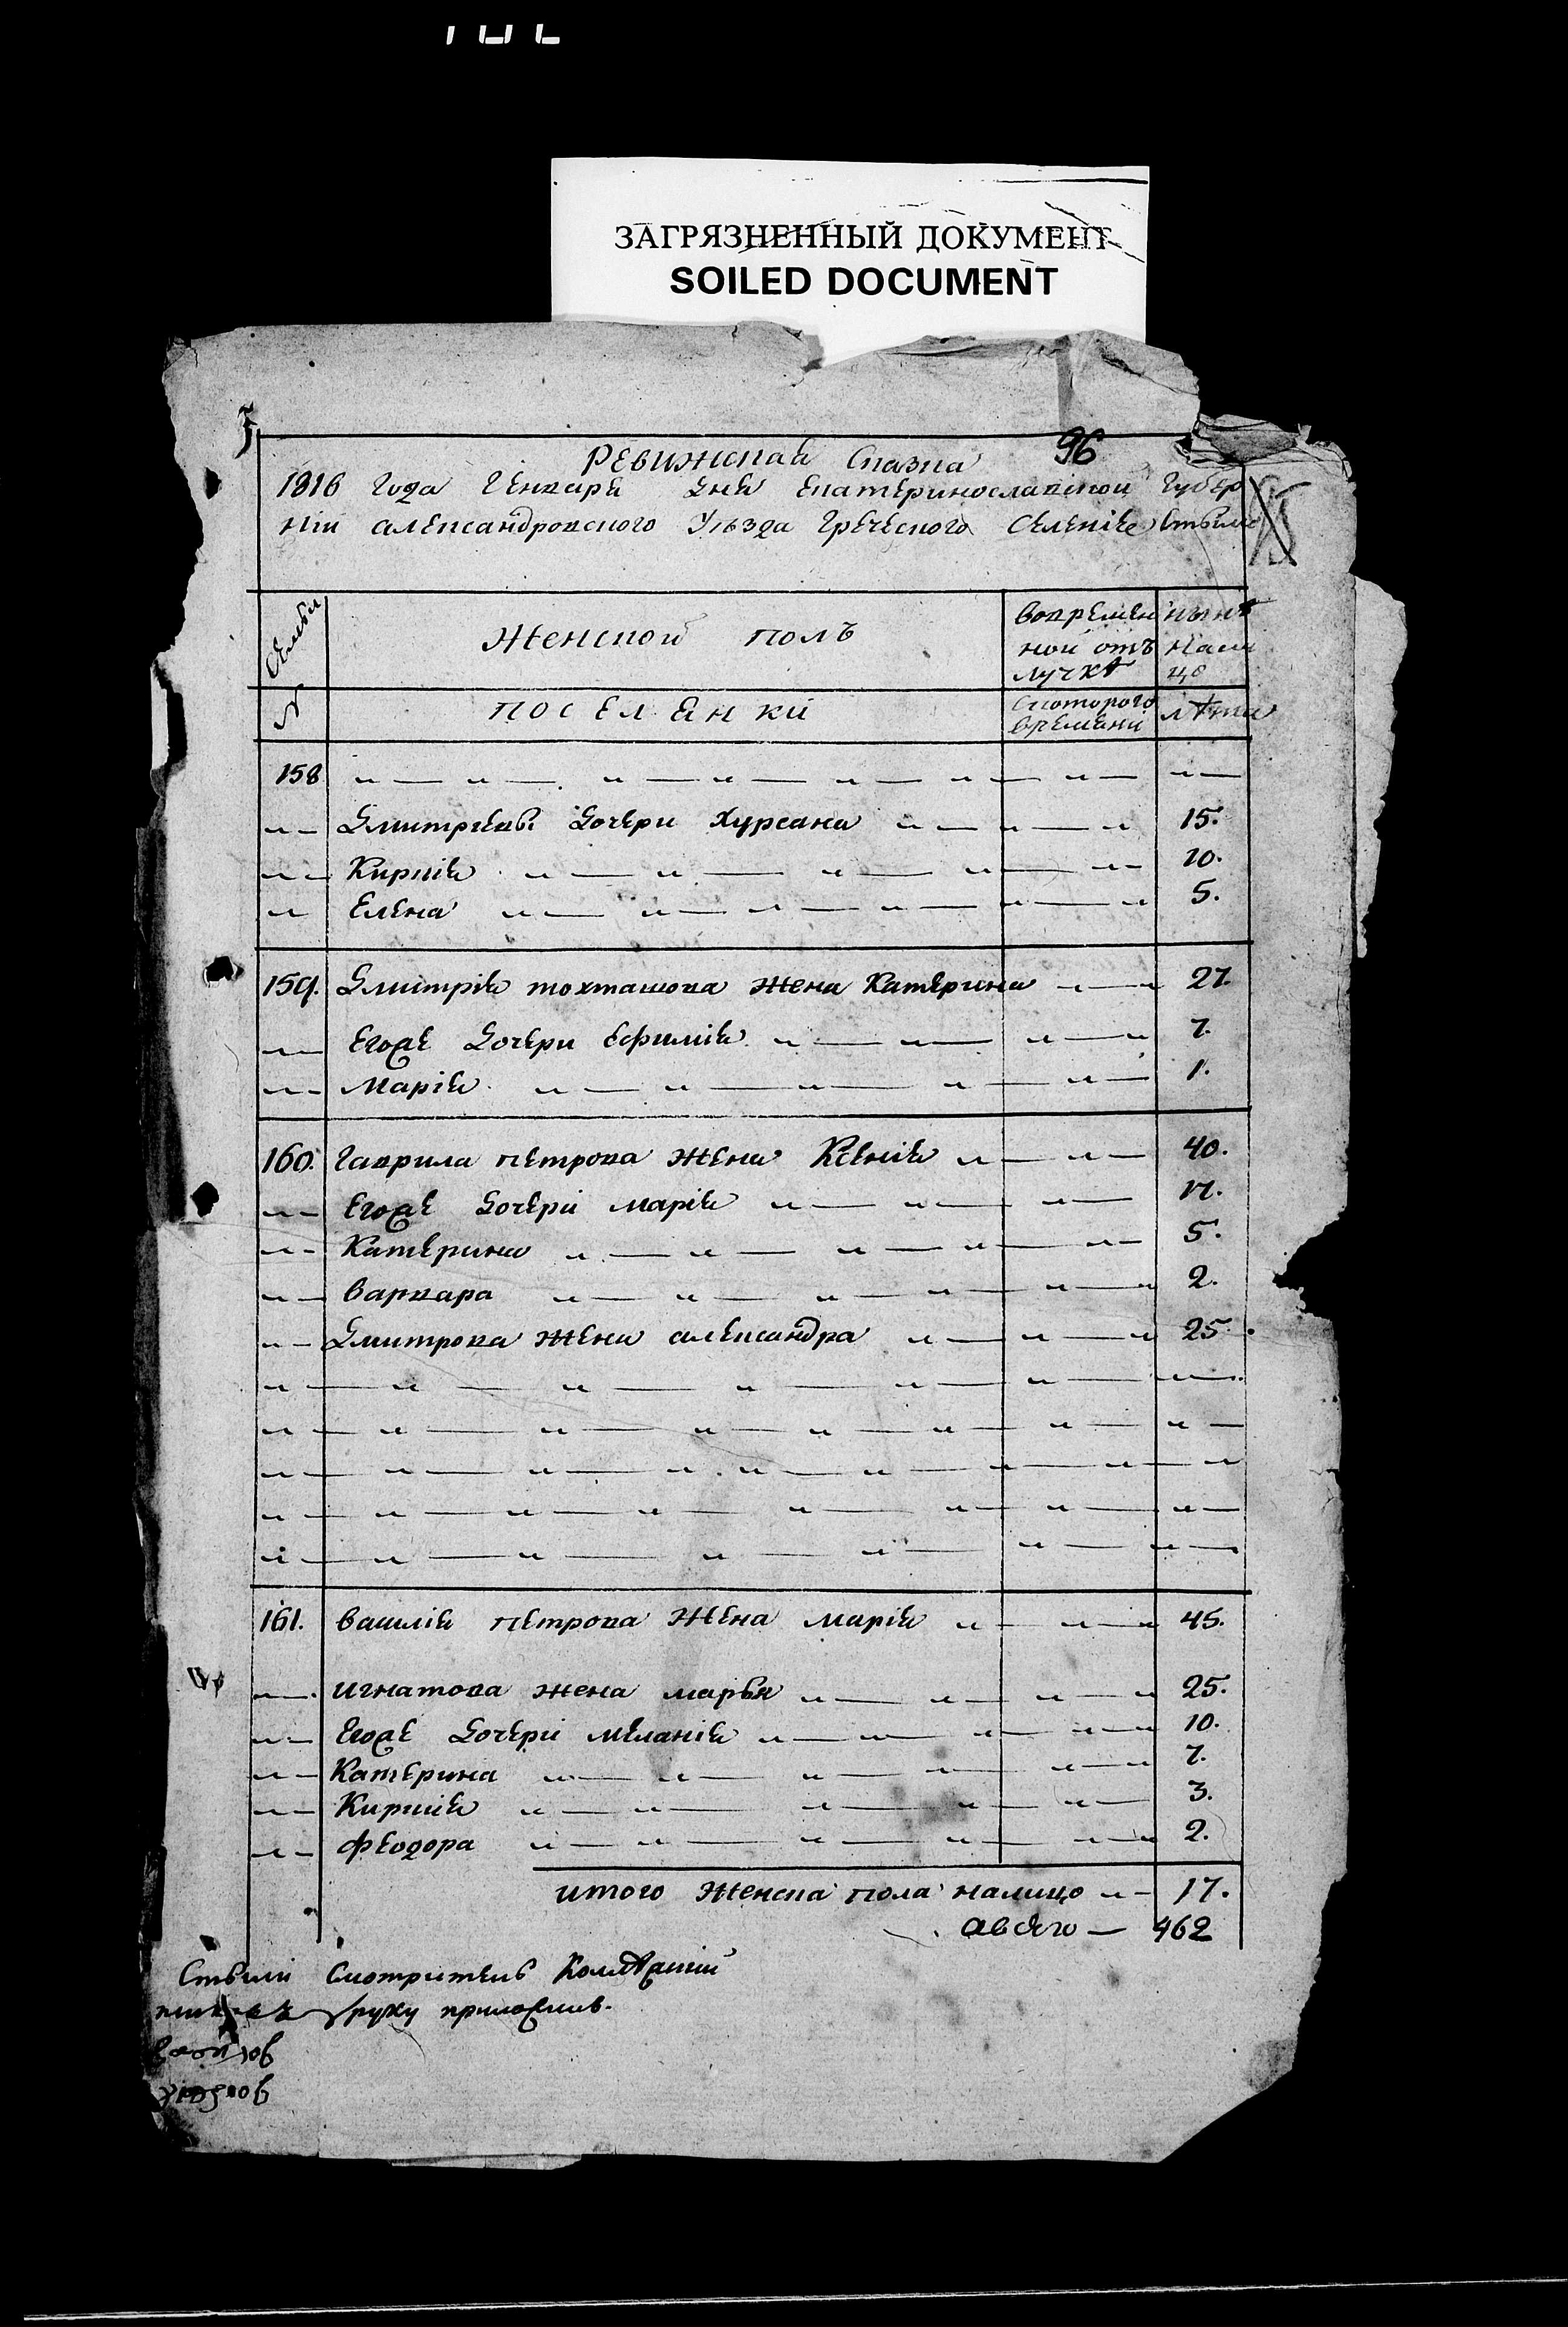 ЗАГРЯЗНЕННЫЙ ДОКУМЕНТ
SOILED DOCUMENT
96
Ревижская Сказка
1816 Года Генваря дня Екатеринославской Губер
ніи александровского Уъзда Греческого Селенія Стыля
Семьи Женской полъ вовремян ной отъ лучкѣ нынѣ нали цо
N поселянки скоторого времени лѣта
158
Дмитріевы Дочери Хурсана 15.
Кирикія 10.
Елена 5.
159. Дмитрія тохташова жена Катерина 27.
Егоже Дочери Ефимія 7.
Марія 1.
160. Гаврила петрова жена Ксенія 40.
Егоже Дочери марія 17.
Катерина 5.
варвара 2.
Дмитрова жена александра 25.
161. василія петрова жена марія 45.
игнатова жена марья 25.
Егоже Дочери меланія 10.
Катерина 7.
Кирикія 3.
феодора 2.
итого женска пола налицо 17.
авсего — 462
Стыли Смотритель
руку приложилъ.